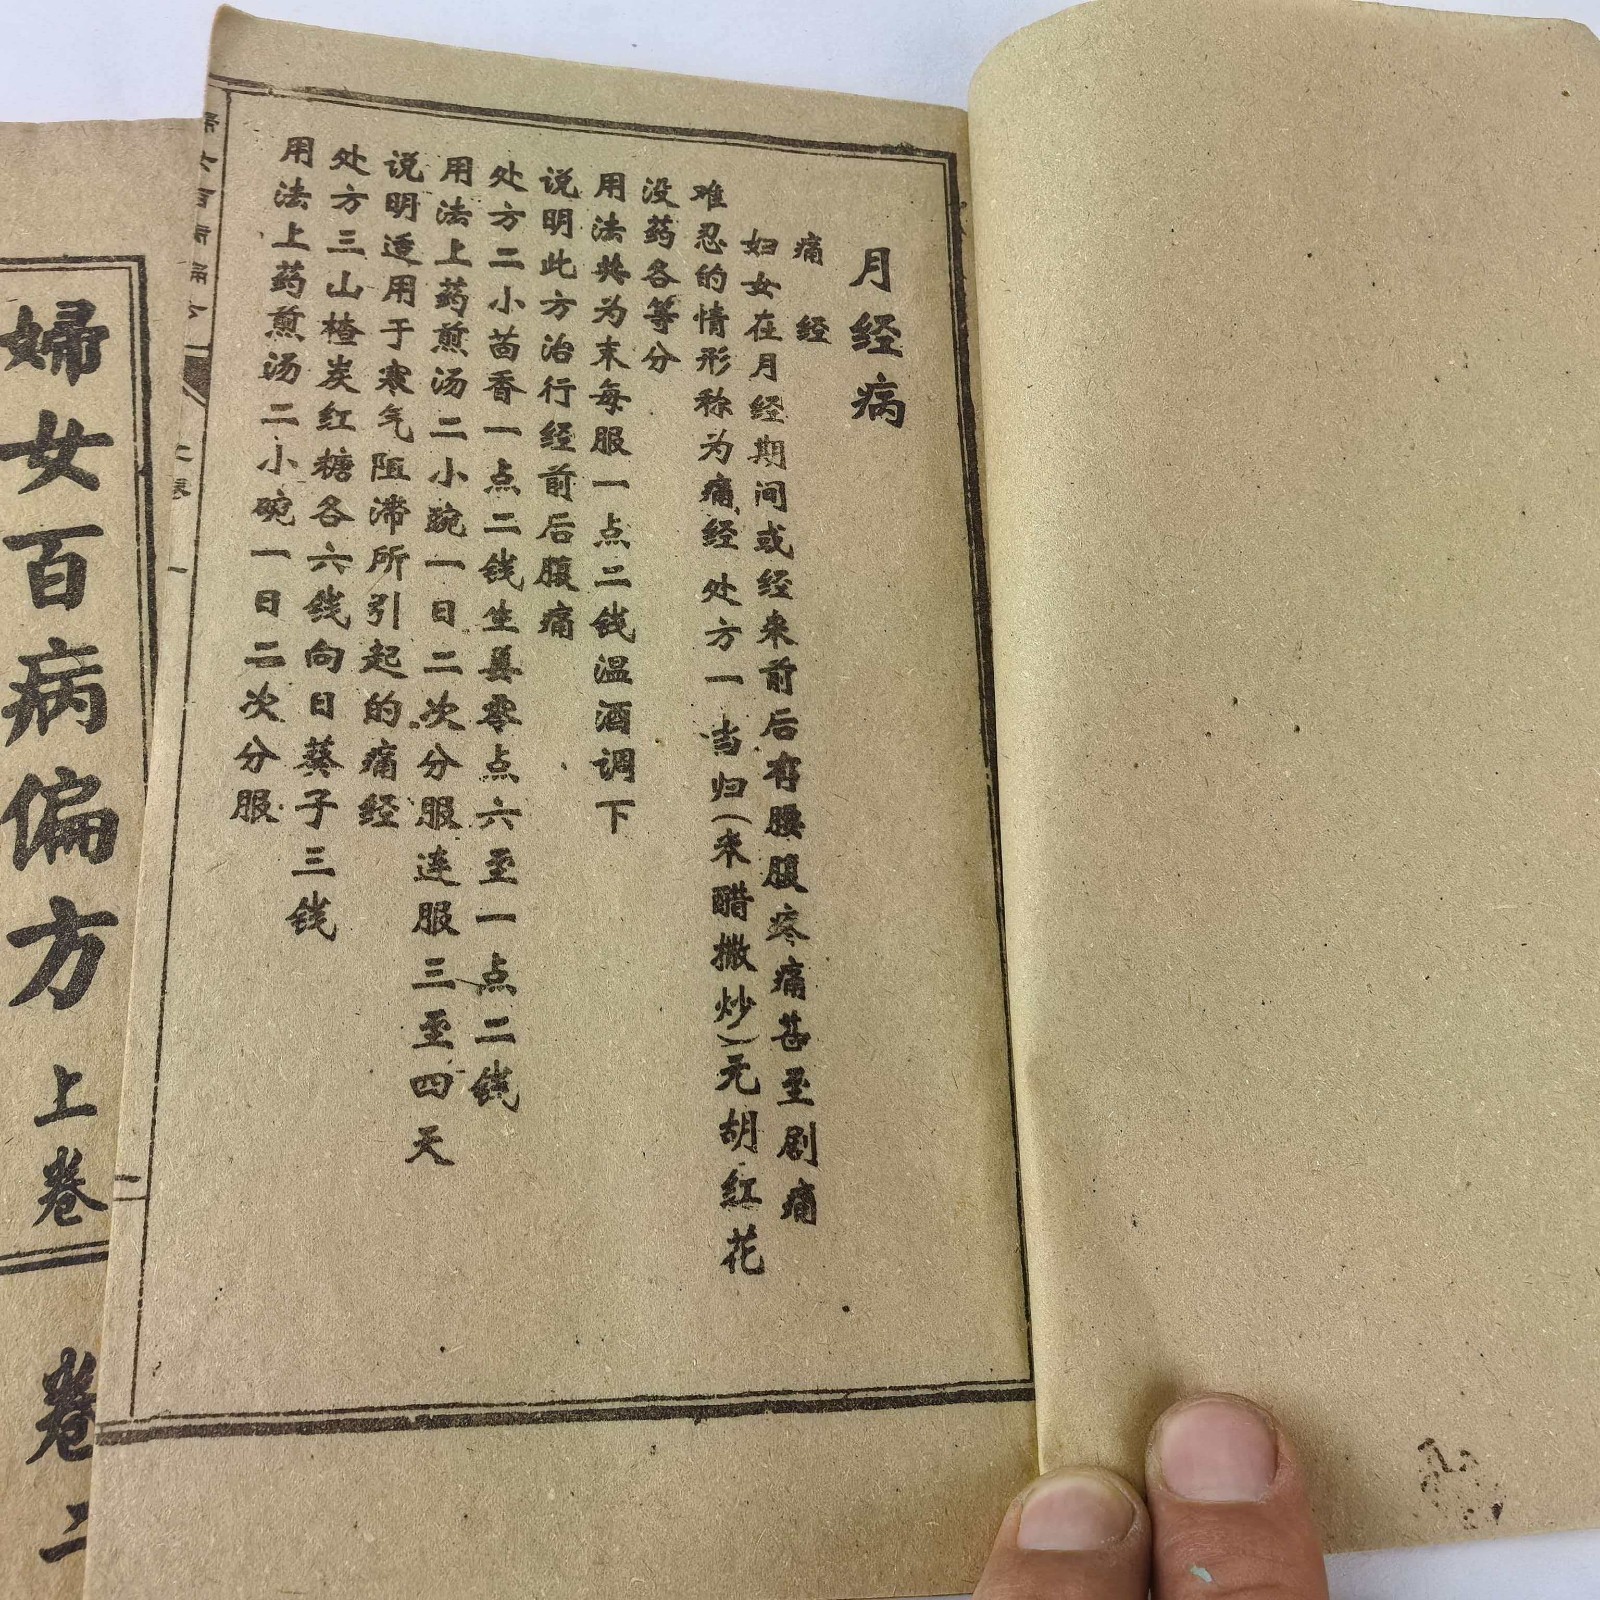 月经病
痛 经
妇女在月经期间或经来前后有腰腹疼痛甚至剧痛
难忍的情形称为痛经 处方一 当归(米醋撒炒)元胡红花
没药各等分
用法共为末每服一点二钱温酒调下
说明此方治行经前后腹痛
处方二小茴香一点二钱生姜零点六至一点二钱
用法上药煎汤二小碗一日二次分服连服三至四天
说明适用于寒气阻滞所引起的痛经
处方三山楂炭红糖各六钱向日葵子三钱
用法上药煎汤二小碗一日二次分服
上卷 一
婦女百病偏方 上卷
卷二